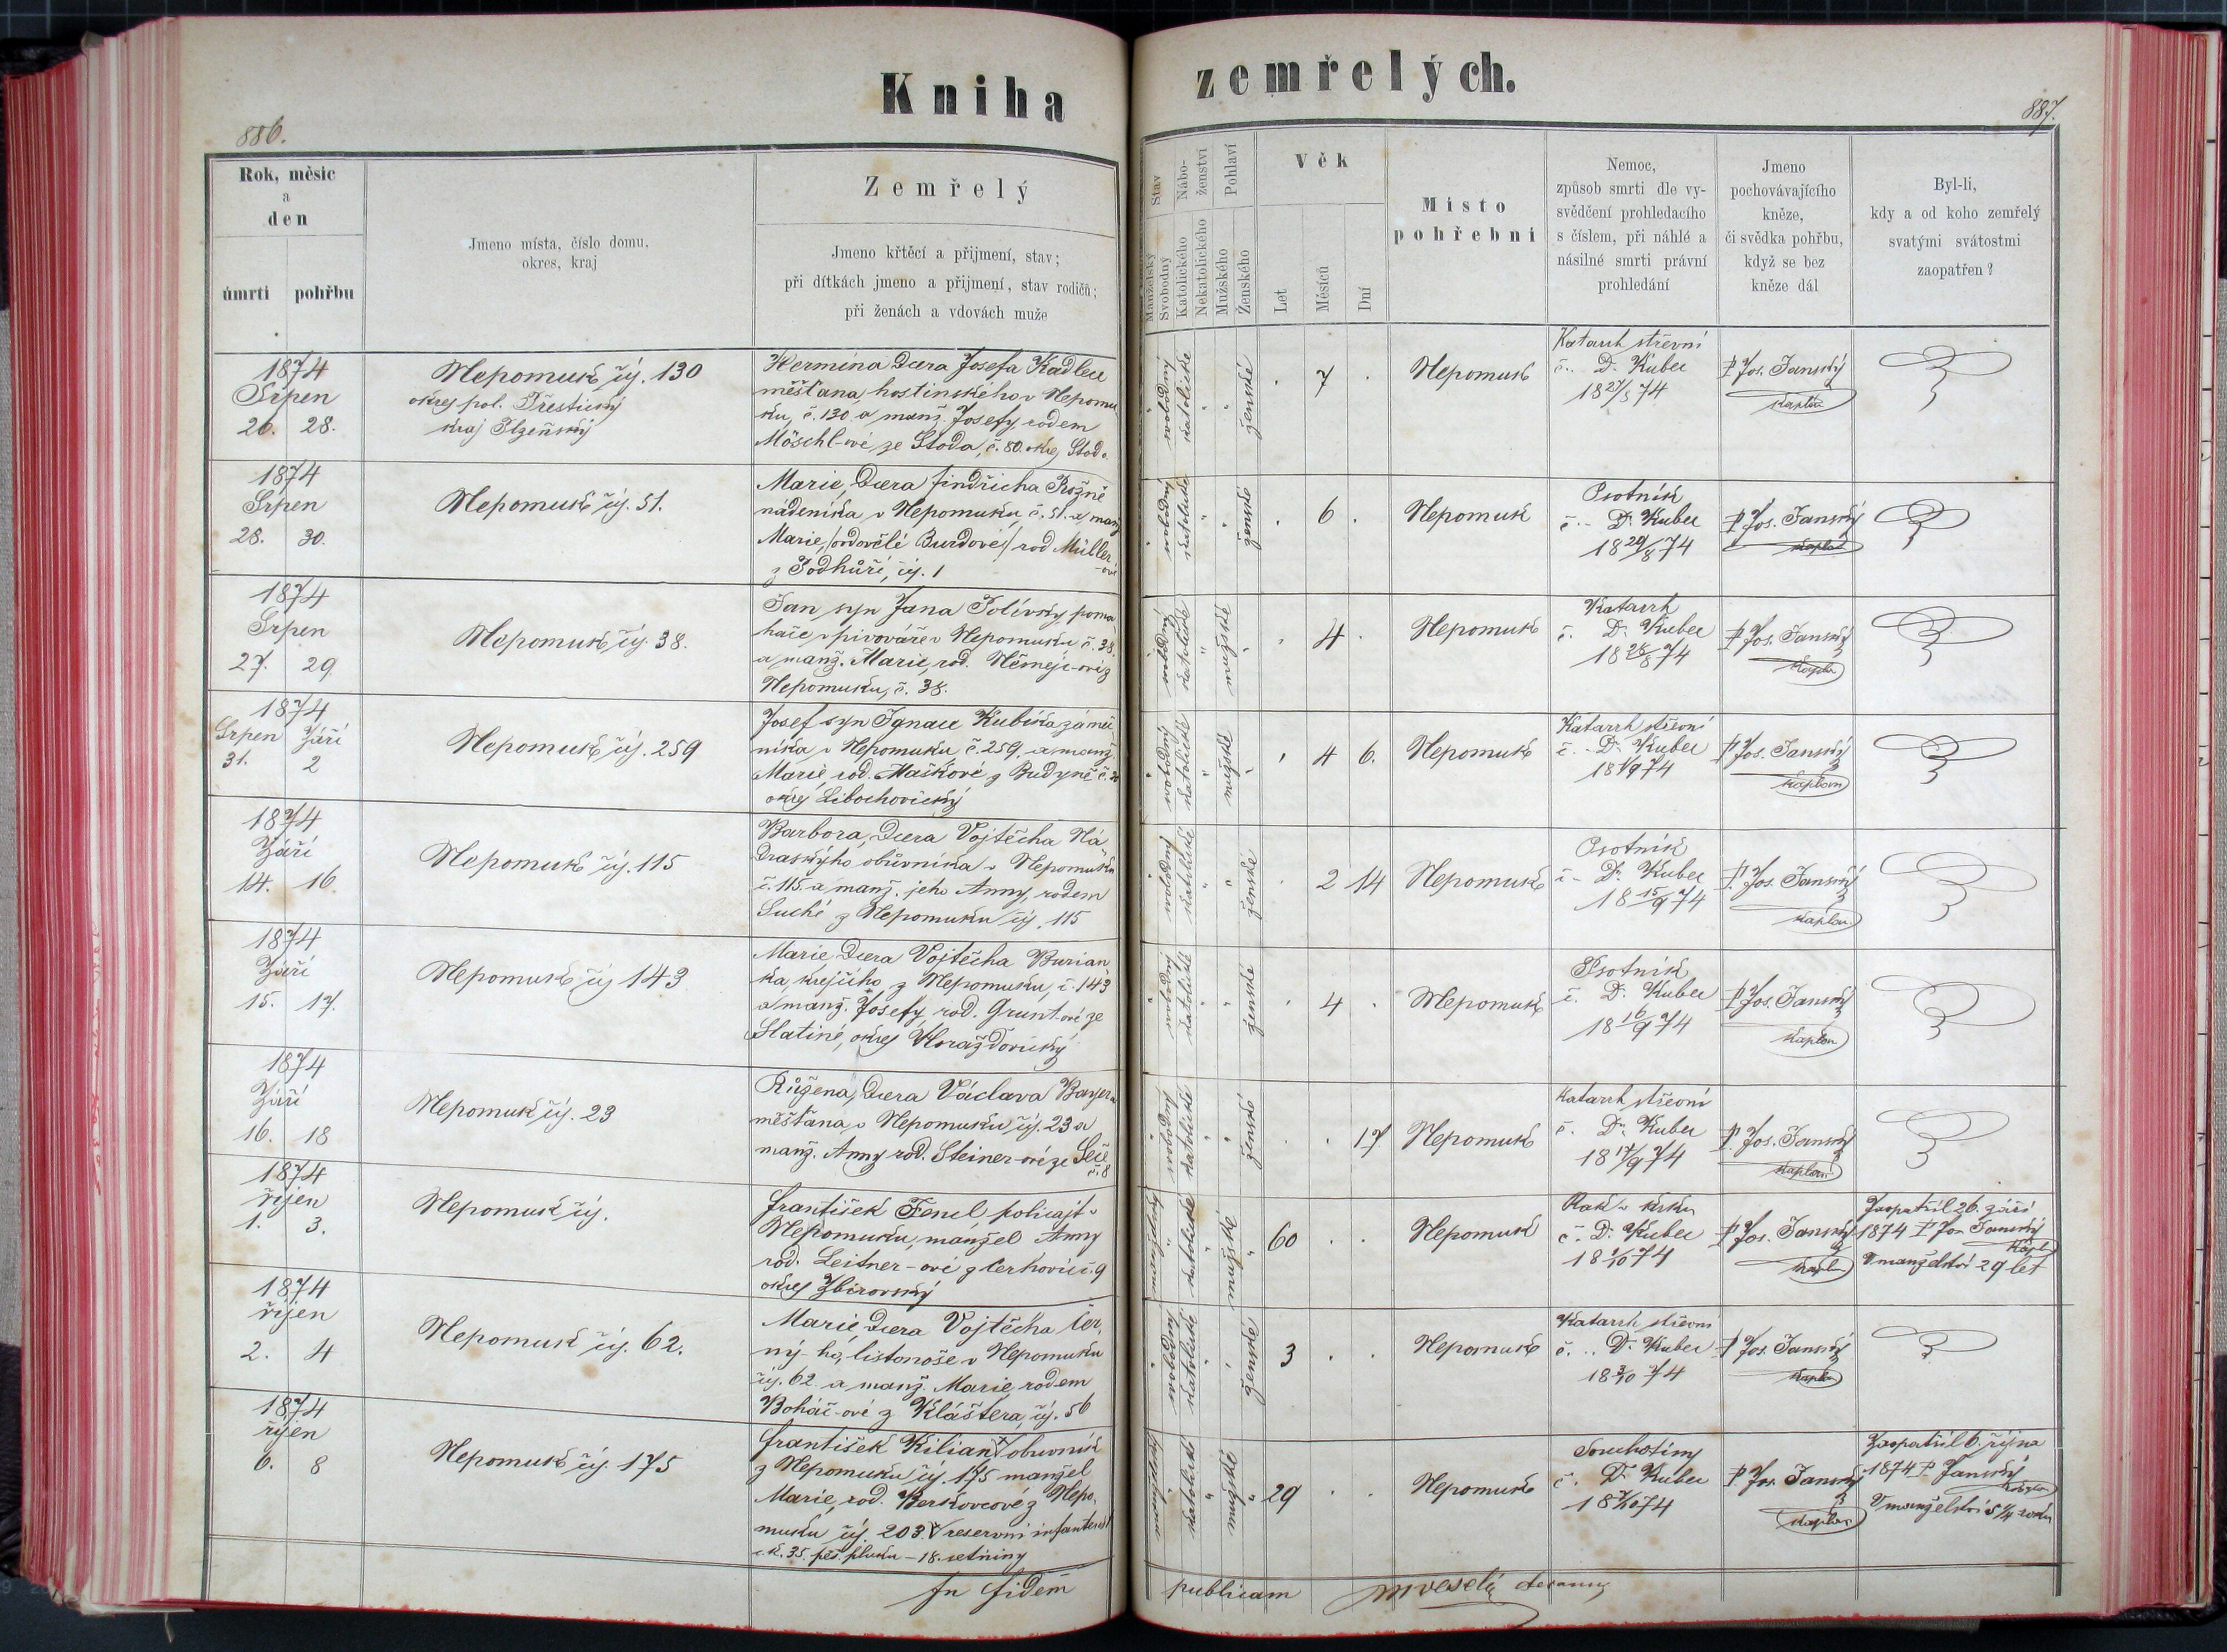 Kniha zemřelých.
886.
887.
Rok, měsíc
a
den
úmrtí pohřbu
Jmeno místa, číslo domu,
okres, kraj
Zemřelý
Jmeno křtěcí a přijmení, stav;
při dítkách jmeno a přijmení, stav rodičů;
při ženách a vdovách muže
Stav
Manželský
Svobodný
Nábo-
ženství
Katolického
Nekatolického
Pohlaví
Mužského
Ženského
Věk
Let
Měsíců
Dní
Místo
pohřební
Nemoc,
způsob smrti dle vy-
svědčení prohledacího
s číslem, při náhlé a
násilné smrti právní
prohledání
Jmeno
pochovávajícího
kněze,
či svědka pohřbu,
když se bez
kněze dál
Byl-li,
kdy a od koho zemřelý
svatými svátostmi
zaopatřen?
1874
Srpen
26. 28.
Nepomuk čís. 130
okres pol. Přestický
kraj Plzeňský
Hermína dcera Josefa Kadlec
měšťana hostinského v Nepomu
ku, č. 130 a manž. Josefy rodem
Möschl-ové ze Stoda, č. 80. okres Stod.
svobodný katolické ženské
7
Nepomuk
Katarrh střevní
č. Dr. Kubec
18 27/8 74
P. Jos. Janský
kaplan
1874
Srpen
28. 30.
Nepomuk čís. 51.
Marie, dcera Jindřicha Rožně
nádeníka v Nepomuku, č. 51. a manž
Marie, /ovdovělé Burdové/ rod Müller
-ové
z Podhůří, čís. 1
svobodný katolické ženské
6.
Nepomuk
Psotník
č. Dr. Kubec
18 29/8 74
P. Jos. Janský
kaplan
1874
Srpen
27. 29
Nepomuk čís. 38.
Jan syn Jana Polívky, poma
hače v pivováře v Nepomuku č. 38.
a manž. Marie, rod. Němejc-ové z
Nepomuku, č. 38.
svobodný katolické mužské
4.
Nepomuk
Katarrh
č. Dr. Kubec
18 28/8 74
P. Jos. Janský
kaplan
1874
Srpen Září
31. 2
Nepomuk čís. 259
Josef syn Ignace Kubíka zámeč
níka v Nepomuku č. 259. a manž.
Marie rod. Maškové z Budyně č. 20
okres Libochovický
svobodný katolické mužské
4 6.
Nepomuk
Katarrh střevní
č. Dr. Kubec
18 1/9 74
P. Jos. Janský
kaplan
1874
Září
14. 16.
Nepomuk čís. 115
Barbora, dcera Vojtěcha Ná
draskýho obůvníka v Nepomuku
č. 115. a manž. jeho Anny, rodem
Suché z Nepomuku čís. 115
svobodný katolické ženské
2 14
Nepomuk
Psotník
č. Dr. Kubec
18 15/9 74
P. Jos. Janský
kaplan
1874
Září
15. 17.
Nepomuk čís 143
Marie dcera Vojtěcha Burian
ka, krejčího z Nepomuku, č. 143
a manž. Josefy, rod. Grunt-ové ze
Slatiné, okres Horažďovický
svobodný katolické ženské
4
Nepomuk
Psotník
č. Dr. Kubec
18 16/9 74
P. Jos. Janský
kaplan
1874
Září
16. 18
Nepomuk čís. 23
Růžena, dcera Václava Bayera
měšťana v Nepomuku čís. 23 a
manž. Anny rod. Steiner-ové ze Seče
č. 8
svobodný katolické ženské
17
Nepomuk
Katarrh střevní
č. Dr. Kubec
18 17/9 74
P. Jos. Janský
kaplan
1874
říjen
1. 3.
Nepomuk čís.
František Fencl policajt v
Nepomuku, manžel Anny
rod. Leitner-ové z Cerhovic č. 9
okres Zbirovský
katolické mužské
60
Nepomuk
Rak v krku
č. Dr. Kubec
18 1/10 74
P. Jos. Janský
kapl
Zaopatřil 26. září
1874 P. Jos Janský
kapl
V manželství 29 let
1874
říjen
2. 4
Nepomuk čís. 62.
Marie dcera Vojtěcha Čer,
ný-ho, listonoše v Nepomuku
čís. 62. a manž. Marie rodem
Boháč-ové z Kláštera, čís. 56
svobodný katolické ženské
3
Nepomuk
Katarrh střevní
č. Dr. Kubec
18 3/10 74
P. Jos. Janský
kaplan
1874
říjen
6. 8
Nepomuk čís. 175
František Kilian, obuvník
z Nepomuku čís. 175 manžel
Marie, rod. Berkovcové z Nepo,
muku čís. 203. reservní infanterist
c. k. 35. pěš. pluku – 18. setniny
katolické mužské
29
Nepomuk
Souchotiny
č. Dr. Kubec
18 7/10 74
P. Jos. Janský
kaplan
Zaopatřil 6. října
1874 P. Janský
kaplan
V manželství 5 1/4 roku
In fidem publicam